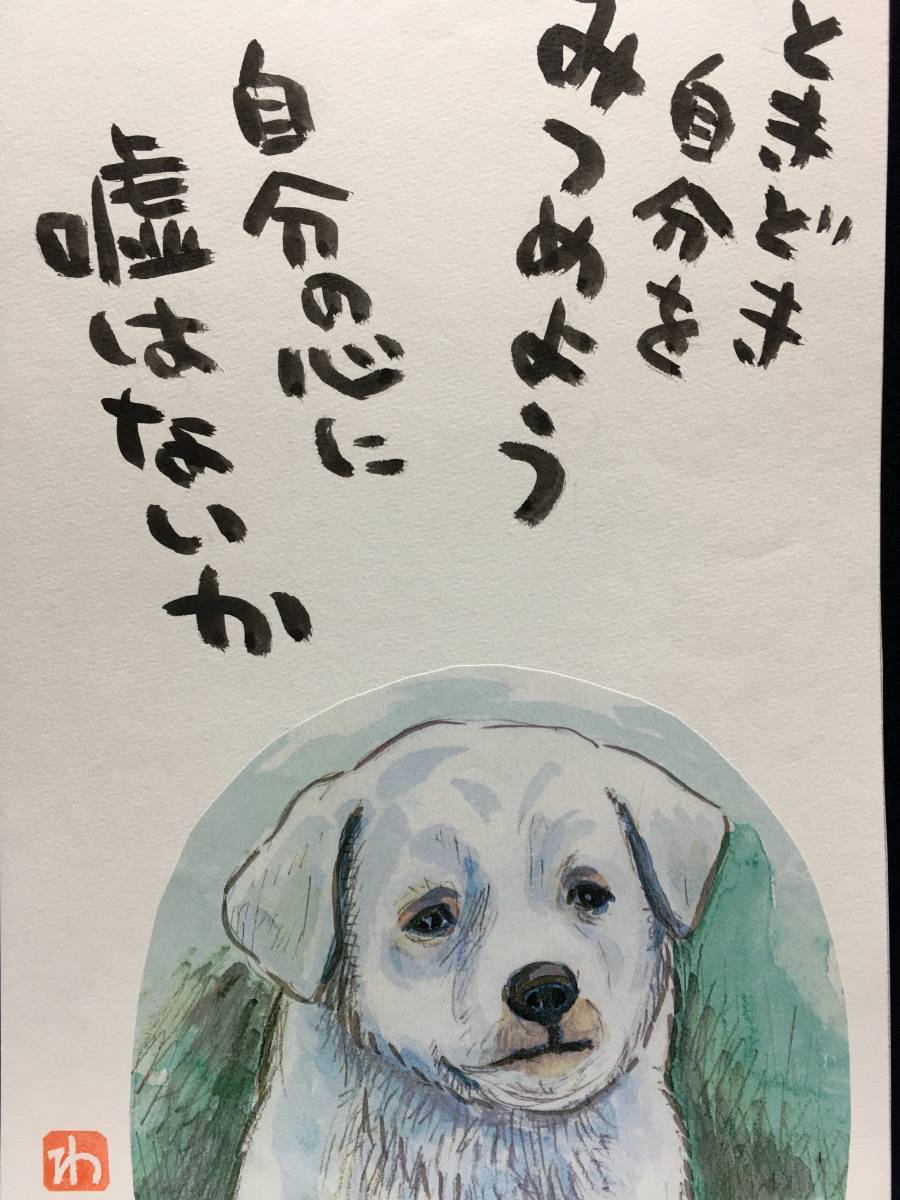 ときどき
自分を
みつめよう
自分の心に
嘘はないか
わ